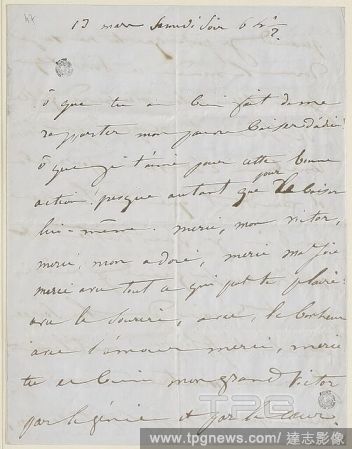 47
13 mars Samedi soir 6 h ½
ô que tu as bien fait de me
rapporter mon pauvre baiser d'adieu!
ô que je t'aime pour cette bonne
action! presque autant que pour le baiser
lui-même. merci, mon victor,
merci, mon adoré, merci ma joie
merci avec tout ce qui peut te plaire:
avec le sourire, avec le bonheur
avec l'amour merci, merci
tu es bien mon grand Victor
par le génie et par le cœur.
TPG
www.tpgnews.com/ 達志影像